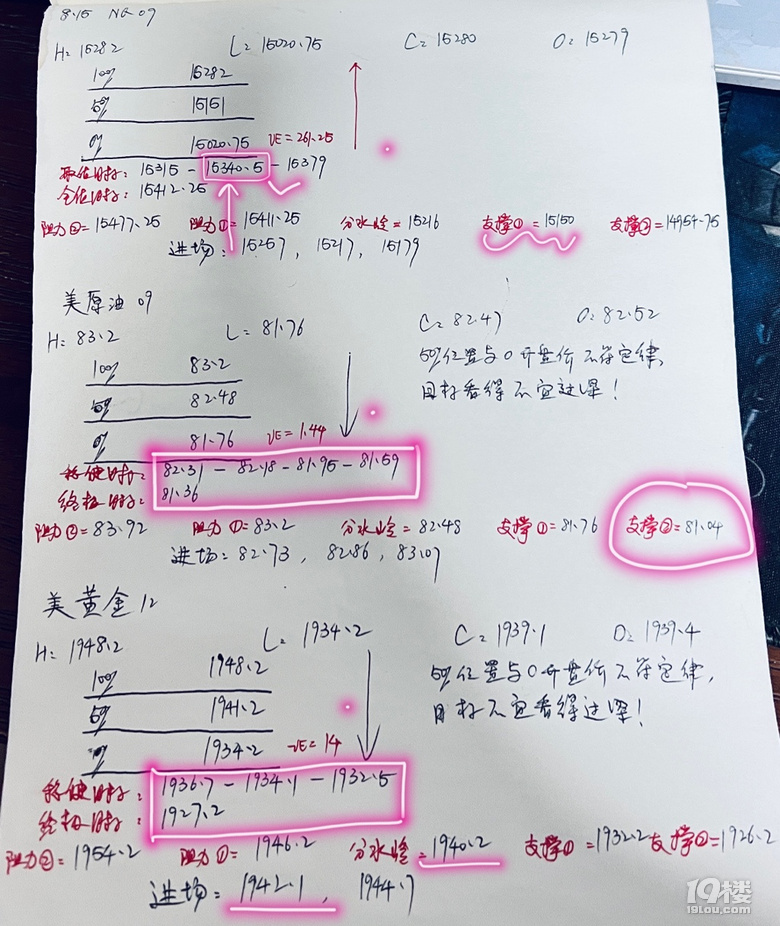 8.15 NQ 09
H=15282 L=15020.75 C=15280 O=15279
100% 15282
50% 15151
0% 15020.75 VE=261.25
15315 - 15340.5 - 15379
15412.25
阻力②=15477.25 阻力①=15411.25 分水岭=15216 支撑①=15150 支撑②=14954.75
进场: 15257, 15217, 15179
美原油 09
H=83.2 L=81.76 C=82.47 O=82.52
100% 83.2
50% 82.48
0% 81.76 VE=1.44
50%位置与O开盘价不符定律,
目标看得不宜过深!
稳健目标: 82.31 - 82.18 - 81.95 - 81.59
终极目标: 81.36
阻力②=83.92 阻力①=83.2 分水岭=82.48 支撑①=81.76 支撑②=81.04
进场: 82.73, 82.86, 83.07
美黄金 12
H=1948.2 L=1934.2 C=1939.1 O=1939.4
100% 1948.2
50% 1941.2
0% 1934.2 VE=14
50%位置与O开盘价不符定律,
目标不宜看得过深!
稳健目标: 1936.7 - 1934.1 - 1932.5
终极目标: 1927.2
阻力②=1954.2 阻力①=1946.2 分水岭=1940.2 支撑①=1932.2 支撑②=1926.2
进场: 1942.1, 1944.7
19楼
19lou.com